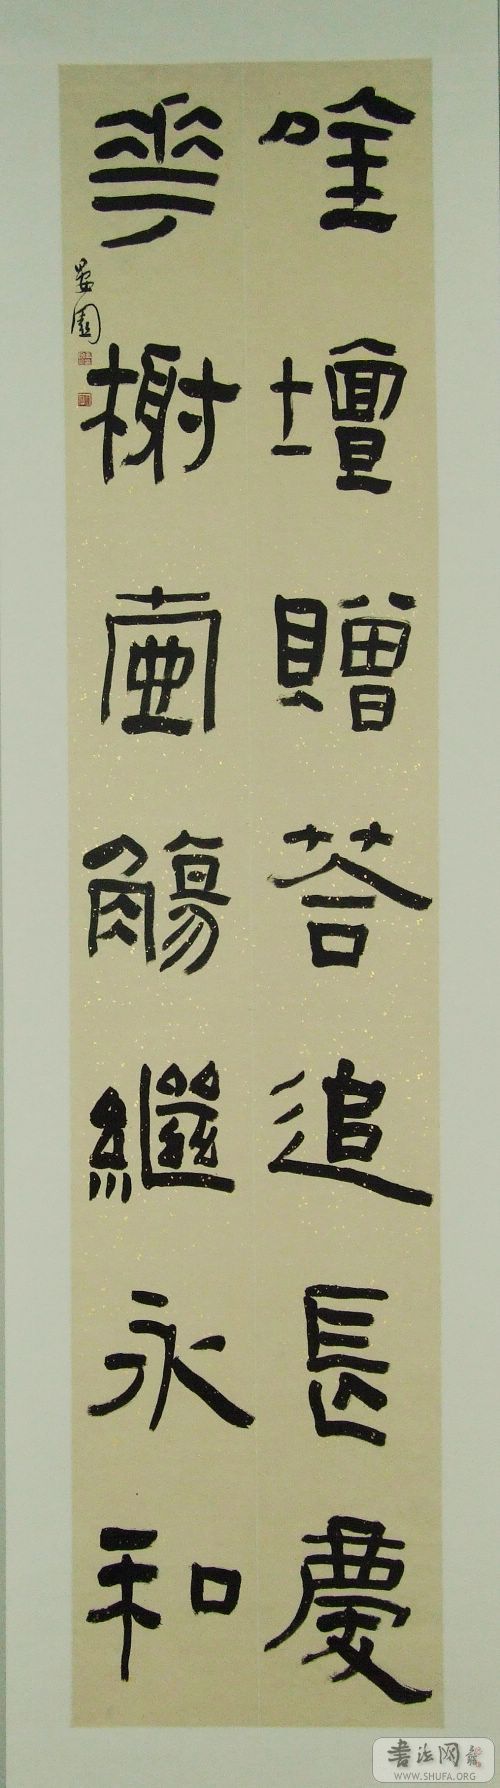 唫壇贈荅追長慶
華榭壺觴繼永和
書法网
WWW.SHUFA.ORG